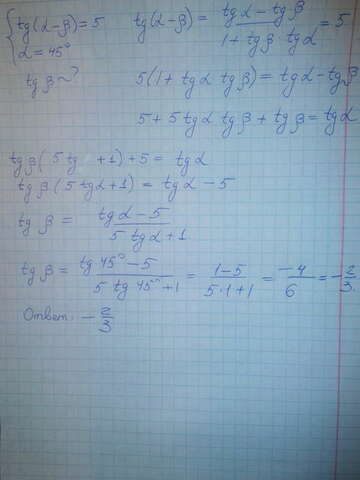 { tg(α-β)=5
α=45°
tg β ~?
tg(α-β) = (tgα - tgβ)/(1+tgβ tgα) = 5
5(1+tgα tgβ) = tgα - tgβ
5+5tgα tgβ + tgβ = tgα
tgβ(5tg +1)+5 = tgα
tgβ(5tgα+1) = tgα - 5
tg β = (tgα-5)/(5 tgα+1)
tgβ = (tg45°-5)/(5 tg45°+1) = (1-5)/(5·1+1) = (-4)/6 = -2/3.
Ответ: - 2/3